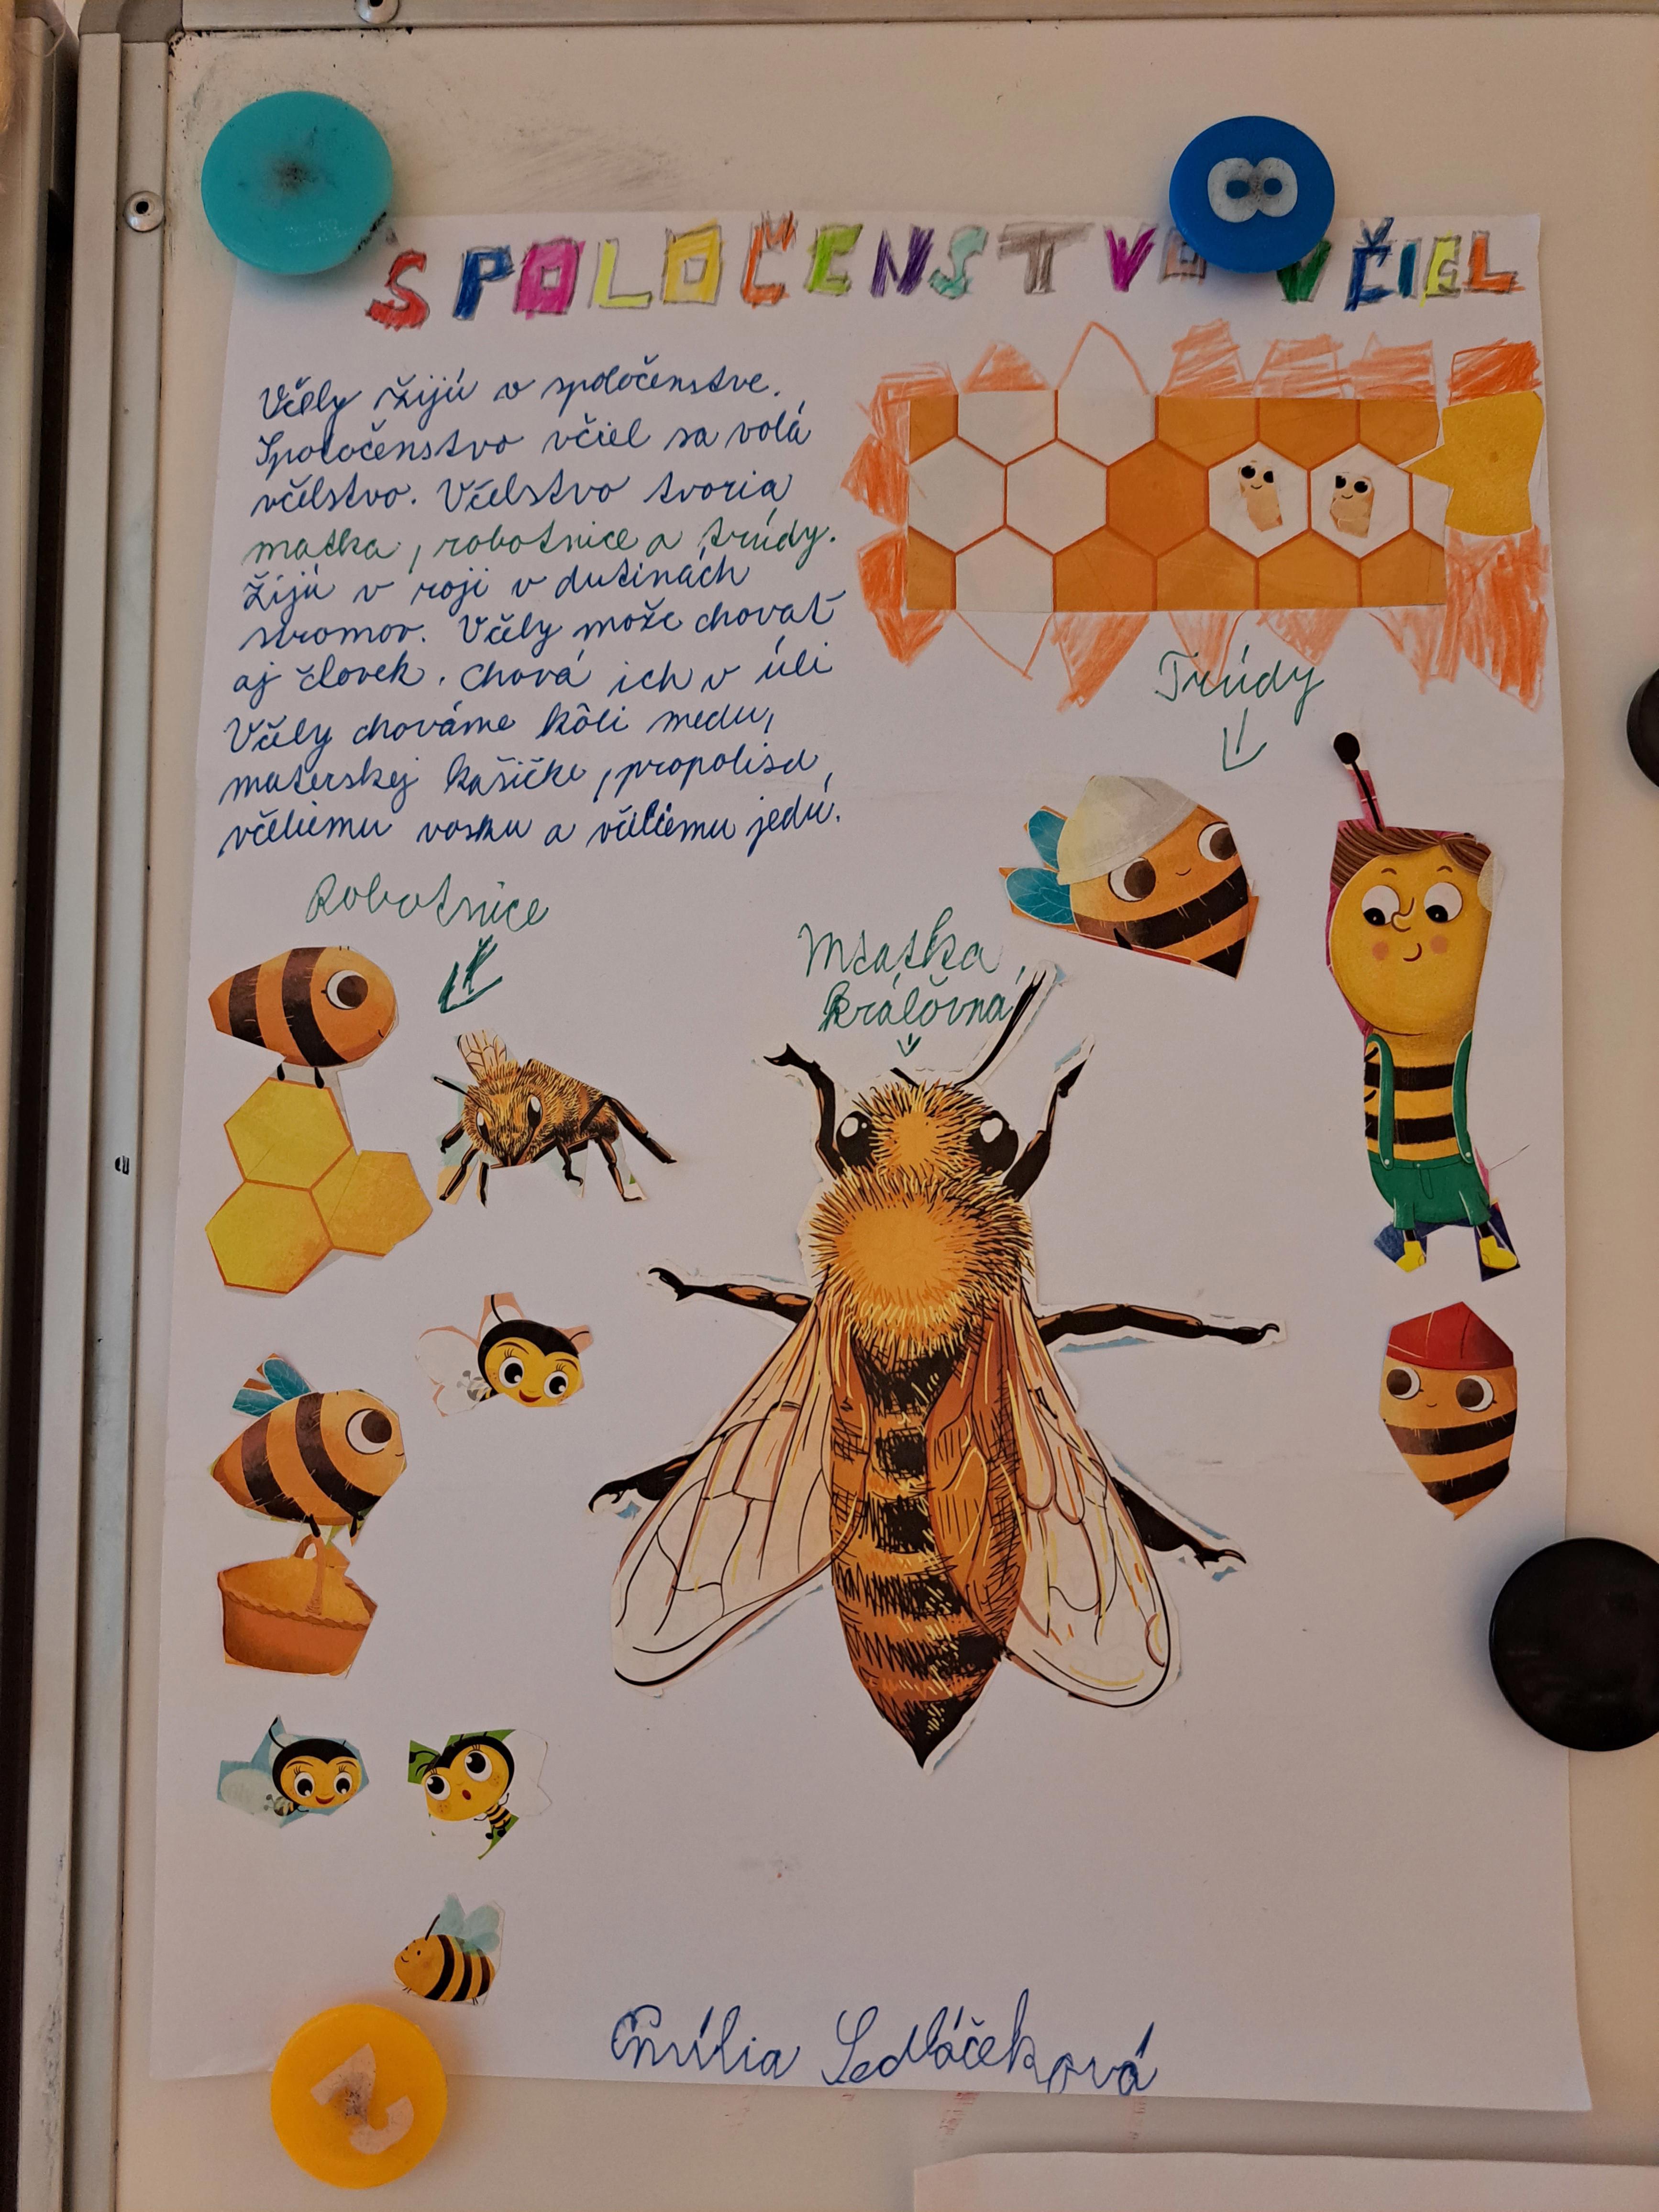 SPOLOČENSTVO VČIEL
Včely žijú v spoločenstve.
Spoločenstvo včiel sa volá
včelstvo. Včelstvo tvoria
matka, robotnice a trúdy.
Žijú v roji v dutinách
stromov. Včely može chovať
aj človek. Chová ich v úli
Včely chováme kôli medu,
materskej kašičke, propolisu,
včeliemu vosku a včeliemu jedu.
Trúdy
Robotnice
Matka,
králóvná
Emília Sedláčeková
8
2